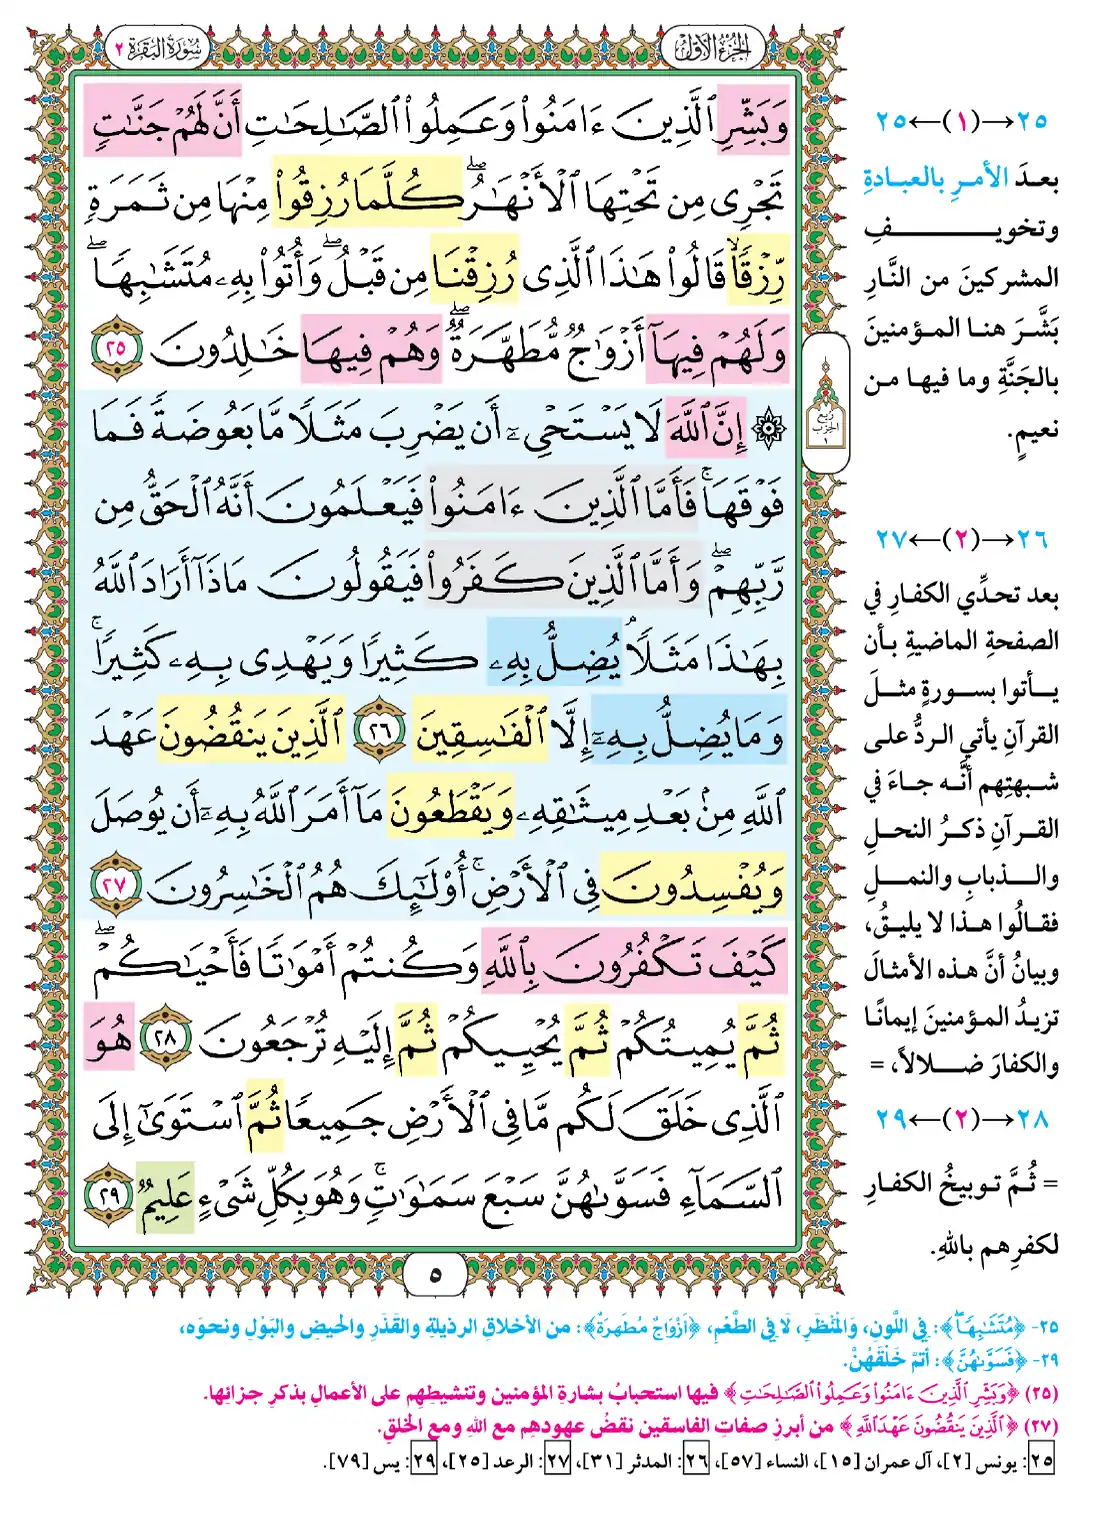 الجزء الأول
سورة البقرة ٢
وَبَشِّرِ ٱلَّذِينَ ءَامَنُوا۟ وَعَمِلُوا۟ ٱلصَّـٰلِحَـٰتِ أَنَّ لَهُمْ جَنَّـٰتٍ
تَجْرِى مِن تَحْتِهَا ٱلْأَنْهَـٰرُ ۖ كُلَّمَا رُزِقُوا۟ مِنْهَا مِن ثَمَرَةٍ
رِّزْقًا ۙ قَالُوا۟ هَـٰذَا ٱلَّذِى رُزِقْنَا مِن قَبْلُ ۖ وَأُتُوا۟ بِهِۦ مُتَشَـٰبِهًا ۖ
وَلَهُمْ فِيهَآ أَزْوَٰجٌ مُّطَهَّرَةٌ ۖ وَهُمْ فِيهَا خَـٰلِدُونَ ٢٥
۞ إِنَّ ٱللَّهَ لَا يَسْتَحْىِۦٓ أَن يَضْرِبَ مَثَلًا مَّا بَعُوضَةً فَمَا
فَوْقَهَا ۚ فَأَمَّا ٱلَّذِينَ ءَامَنُوا۟ فَيَعْلَمُونَ أَنَّهُ ٱلْحَقُّ مِن
رَّبِّهِمْ ۖ وَأَمَّا ٱلَّذِينَ كَفَرُوا۟ فَيَقُولُونَ مَاذَآ أَرَادَ ٱللَّهُ
بِهَـٰذَا مَثَلًا ۘ يُضِلُّ بِهِۦ كَثِيرًا وَيَهْدِى بِهِۦ كَثِيرًا ۚ
وَمَا يُضِلُّ بِهِۦٓ إِلَّا ٱلْفَـٰسِقِينَ ٢٦ ٱلَّذِينَ يَنقُضُونَ عَهْدَ
ٱللَّهِ مِنۢ بَعْدِ مِيثَـٰقِهِۦ وَيَقْطَعُونَ مَآ أَمَرَ ٱللَّهُ بِهِۦٓ أَن يُوصَلَ
وَيُفْسِدُونَ فِى ٱلْأَرْضِ ۚ أُو۟لَـٰٓئِكَ هُمُ ٱلْخَـٰسِرُونَ ٢٧
كَيْفَ تَكْفُرُونَ بِٱللَّهِ وَكُنتُمْ أَمْوَٰتًا فَأَحْيَـٰكُمْ ۖ
ثُمَّ يُمِيتُكُمْ ثُمَّ يُحْيِيكُمْ ثُمَّ إِلَيْهِ تُرْجَعُونَ ٢٨ هُوَ
ٱلَّذِى خَلَقَ لَكُم مَّا فِى ٱلْأَرْضِ جَمِيعًا ثُمَّ ٱسْتَوَىٰٓ إِلَى
ٱلسَّمَآءِ فَسَوَّىٰهُنَّ سَبْعَ سَمَـٰوَٰتٍ ۚ وَهُوَ بِكُلِّ شَىْءٍ عَلِيمٌ ٢٩
ربع
الحزب
١
٥
٢٥→(١)←٢٥
بعدَ الأمرِ بالعبادةِ
وتخويفِ
المشركينَ من النَّارِ
بَشَّرَ هنا المؤمنينَ
بالجَنَّةِ وما فيها من
نعيمٍ.
٢٦→(٢)←٢٧
بعد تحدِّي الكفارِ في
الصفحةِ الماضيةِ بأن
يأتوا بسورةٍ مثلَ
القرآنِ يأتي الردُّ على
شبهتِهم أنَّه جاءَ في
القرآنِ ذكرُ النحلِ
والذبابِ والنملِ
فقالُوا هذا لا يليقُ،
وبيانُ أنَّ هذه الأمثالَ
تزيدُ المؤمنينَ إيمانًا
والكفارَ ضلالاً، =
٢٨→(٢)←٢٩
= ثُمَّ توبيخُ الكفارِ
لكفرِهم باللهِ.
٢٥- ﴿مُتَشَـٰبِهًا ۖ﴾: فِي اللَّونِ، وَالمَنْظَرِ، لَا فِي الطَّعْمِ، ﴿أَزْوَاجٌ مُطَهَرَةٌ﴾: من الأخلاقِ الرذيلةِ والقَذَرِ والحَيضِ والبَوْلِ ونحوِه،
٢٩- ﴿فَسَوَّىٰهُنَّ﴾: أتمَّ خَلْقَهُنَّ.
(٢٥) ﴿وَبَشِّرِ ٱلَّذِينَ ءَامَنُوا۟ وَعَمِلُوا۟ ٱلصَّـٰلِحَـٰتِ﴾ فيها استحبابُ بشارةِ المؤمنين وتنشيطِهم على الأعمالِ بذكرِ جزائِها.
(٢٧) ﴿ٱلَّذِينَ يَنقُضُونَ عَهْدَ ٱللَّهِ﴾ من أبرزِ صفاتِ الفاسقين نقضُ عهودِهم مع اللهِ ومع الخلقِ.
٢٥: يونس [٢]، آل عمران [١٥]، النساء [٥٧]، ٢٦: المدثر [٣١]، ٢٧: الرعد [٢٥]، ٢٩: يس [٧٩].